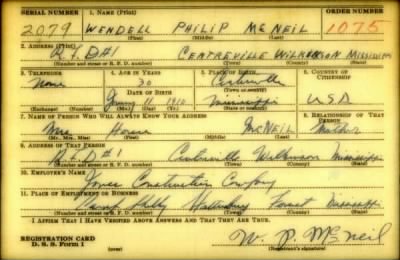 SERIAL NUMBER 1. NAME (Print) ORDER NUMBER
2079 WENDELL PHILIP MCNEIL 1075
(First) (Middle) (Last)
2. ADDRESS (Print)
R.F.D#1 CENTREVILLE WILKINSON MISSISSIPPI
(Number and street or R. F. D. number) (Town) (County) (State)
3. TELEPHONE 4. AGE IN YEARS 5. PLACE OF BIRTH 6. COUNTRY OF CITIZENSHIP
None 30 Centreville
DATE OF BIRTH (Town or county)
11 1910 Mississippi U.S.A
(Exchange) (Number) (Mo.) (Day) (Yr.) (State or country)
7. NAME OF PERSON WHO WILL ALWAYS KNOW YOUR ADDRESS 8. RELATIONSHIP OF THAT PERSON
Mrs. McNEIL Mother
(Mr., Mrs., Miss) (First) (Middle) (Last)
9. ADDRESS OF THAT PERSON
R.F.D#1 Centreville Wilkinson Mississippi
(Number and street or R. F. D. number) (Town) (County) (State)
10. EMPLOYER'S NAME
Jones Construction Company
11. PLACE OF EMPLOYMENT OR BUSINESS
Camp Shelby Hattiesburg Forrest Mississippi
(Number and street or R. F. D. number) (Town) (County) (State)
I AFFIRM THAT I HAVE VERIFIED ABOVE ANSWERS AND THAT THEY ARE TRUE.
REGISTRATION CARD
D. S. S. Form 1 W. P. McNeil
(Registrant's signature)